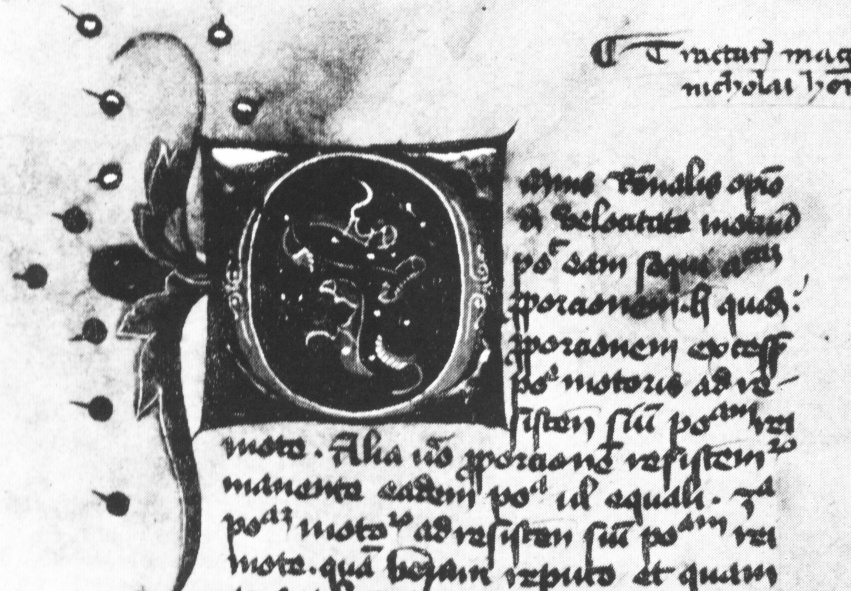 ¶ Tractatꝰ mag
nicholai hor
Omnis rōnalis opīo
d̄ velocitate motuū
poᵗ eam sequi
ꝓporcionem. quedā
ꝓporcionem excess
poᵉ motoris ad re-
sisten siū poᵃᵐ rei
mote. Alia ūo ꝓporcionē resistem
manente eadem poᵃ ul equali. 3ᵃ
poᵃʳ motoꝝ ad resisten siū poᵃᵐ rei
mote. quā veram reputo et quam